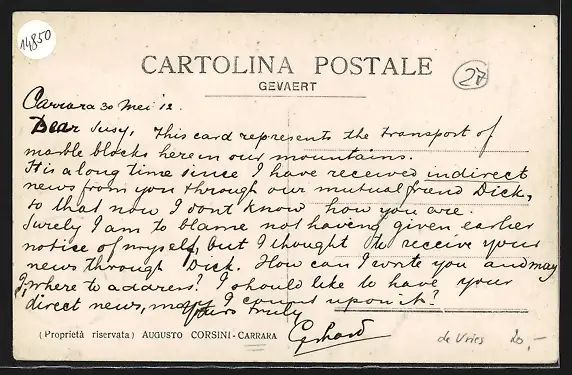 14850
CARTOLINA POSTALE
27
GEVAERT
Carrara 30 Mei 12.
Dear Susy, This card represents the transport of
marble blocks here in our mountains.
It is a long time since I have received indirect
news from you through our mutual friend Dick,
so that now I dont know how you are.
Surely I am to blame not having given earlier
notice of myself, but I thought to receive your
news through Dick. How can I write you and may
I, where to address? I should like to have your
direct news, may I count upon it?
Yours truly
Gerhard
(Proprietà riservata) AUGUSTO CORSINI-CARRARA
de Vries 20,-